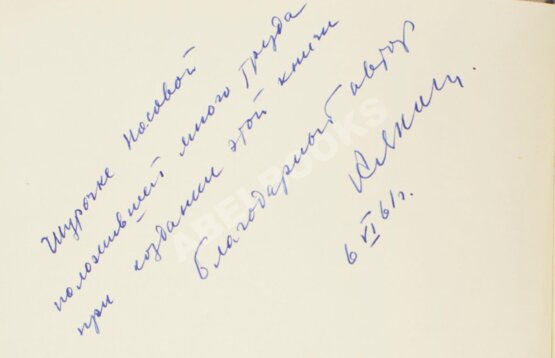 Шурочке Носовой
положившей много труда
при создании этой книги
благодарный автор
6 VI 61 г.
ABELBOOKS